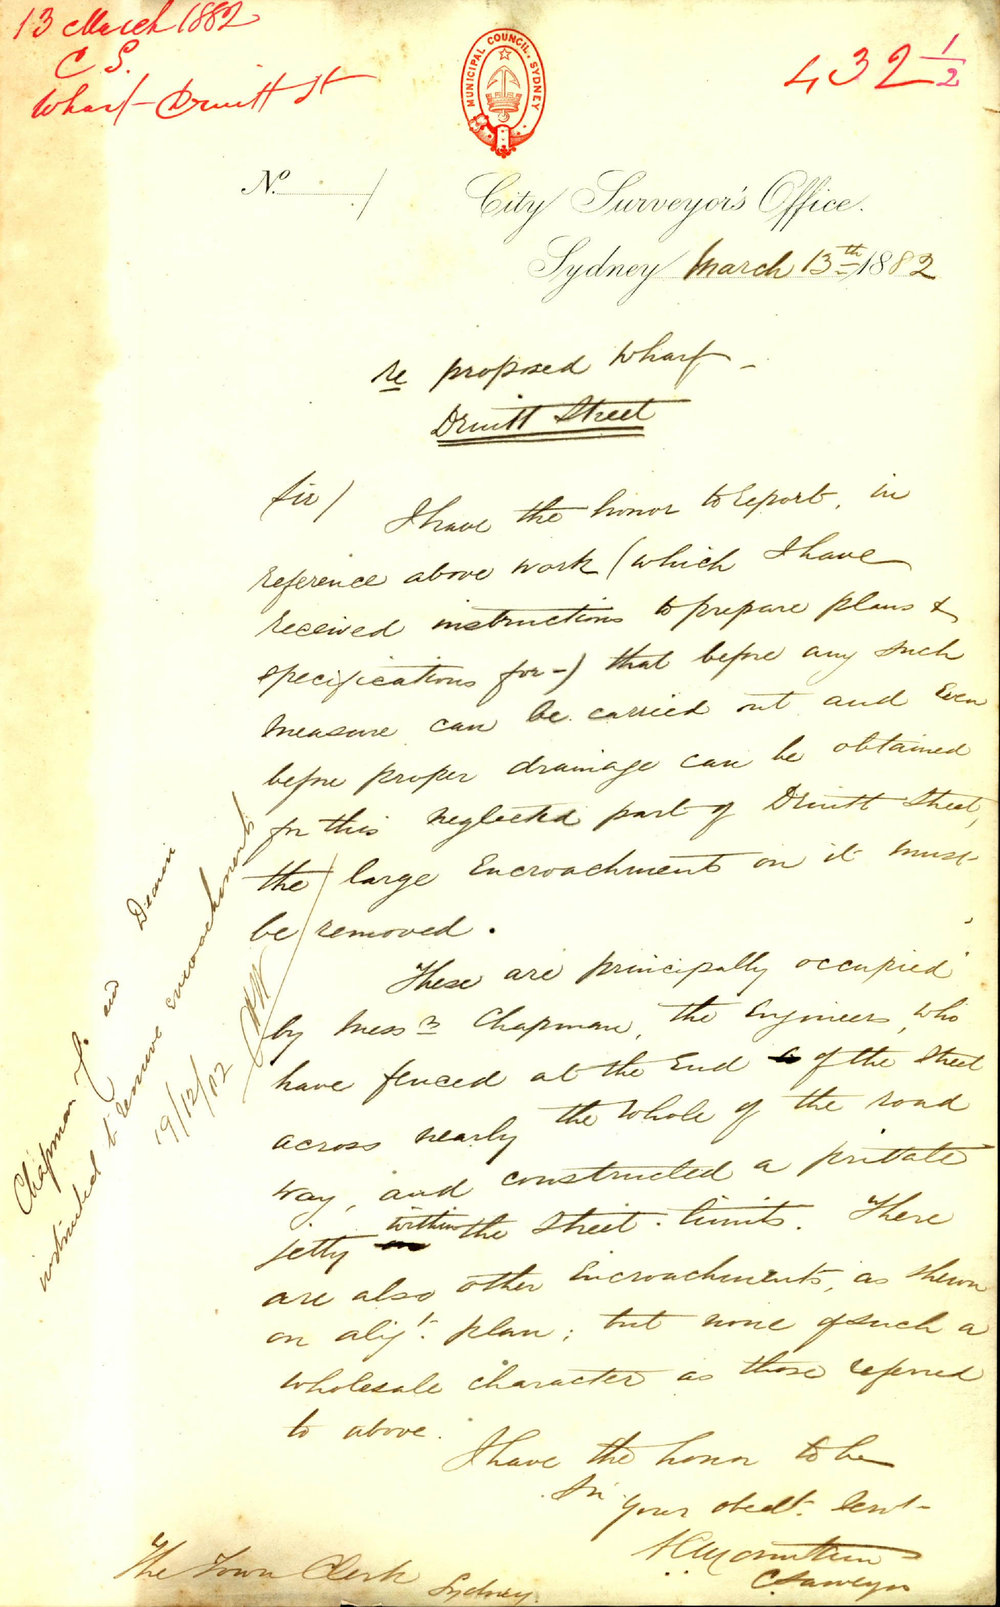 13 March 1882
C S.
Wharf - Druitt St
432 1/2
MUNICIPAL COUNCIL. SYDNEY
No.
City Surveyor's Office.
Sydney March 13th 1882
re proposed Wharf -
Druitt Street
Sir/
I have the honor to report, in
reference above work (which I have
received instructions to prepare plans &
specifications for -) that before any such
measure can be carried out and even
before proper drainage can be obtained
for this neglected part of Druitt Street,
the large encroachments on it must
be removed.
These are principally occupied
by Messrs Chapman, the Engineers, who
have fenced at the end of the Street
across nearly the whole of the road
way, and constructed a private
jetty within the Street limits. There
are also other encroachments, as shewn
on alig't. plan; but none of such a
wholesale character as those referred
to above.
I have the honor to be
Sir
Your obedt. Servt -
C Surveyor
The Town Clerk
Sydney.
Chapman and
instructed to remove encroachments
19/12/82